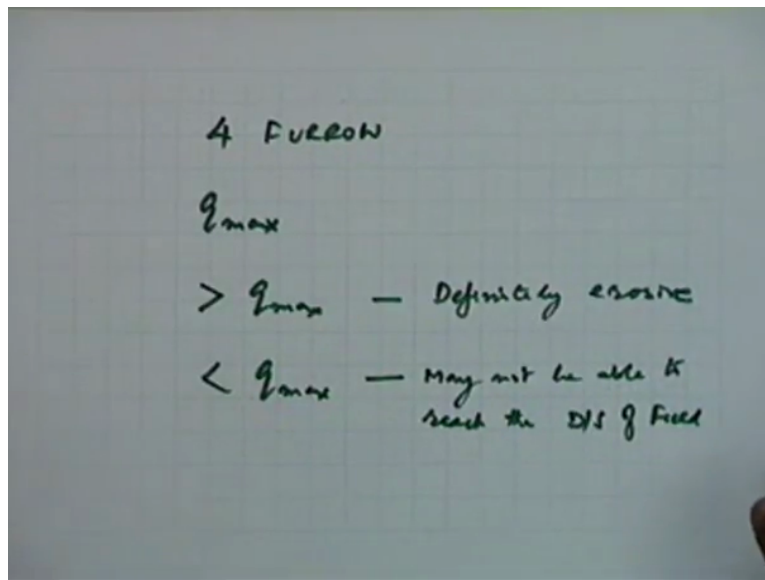 4 FURROW
qmax
> qmax — Definitely erosive
< qmax — May not be able to
reach the D/S of Field